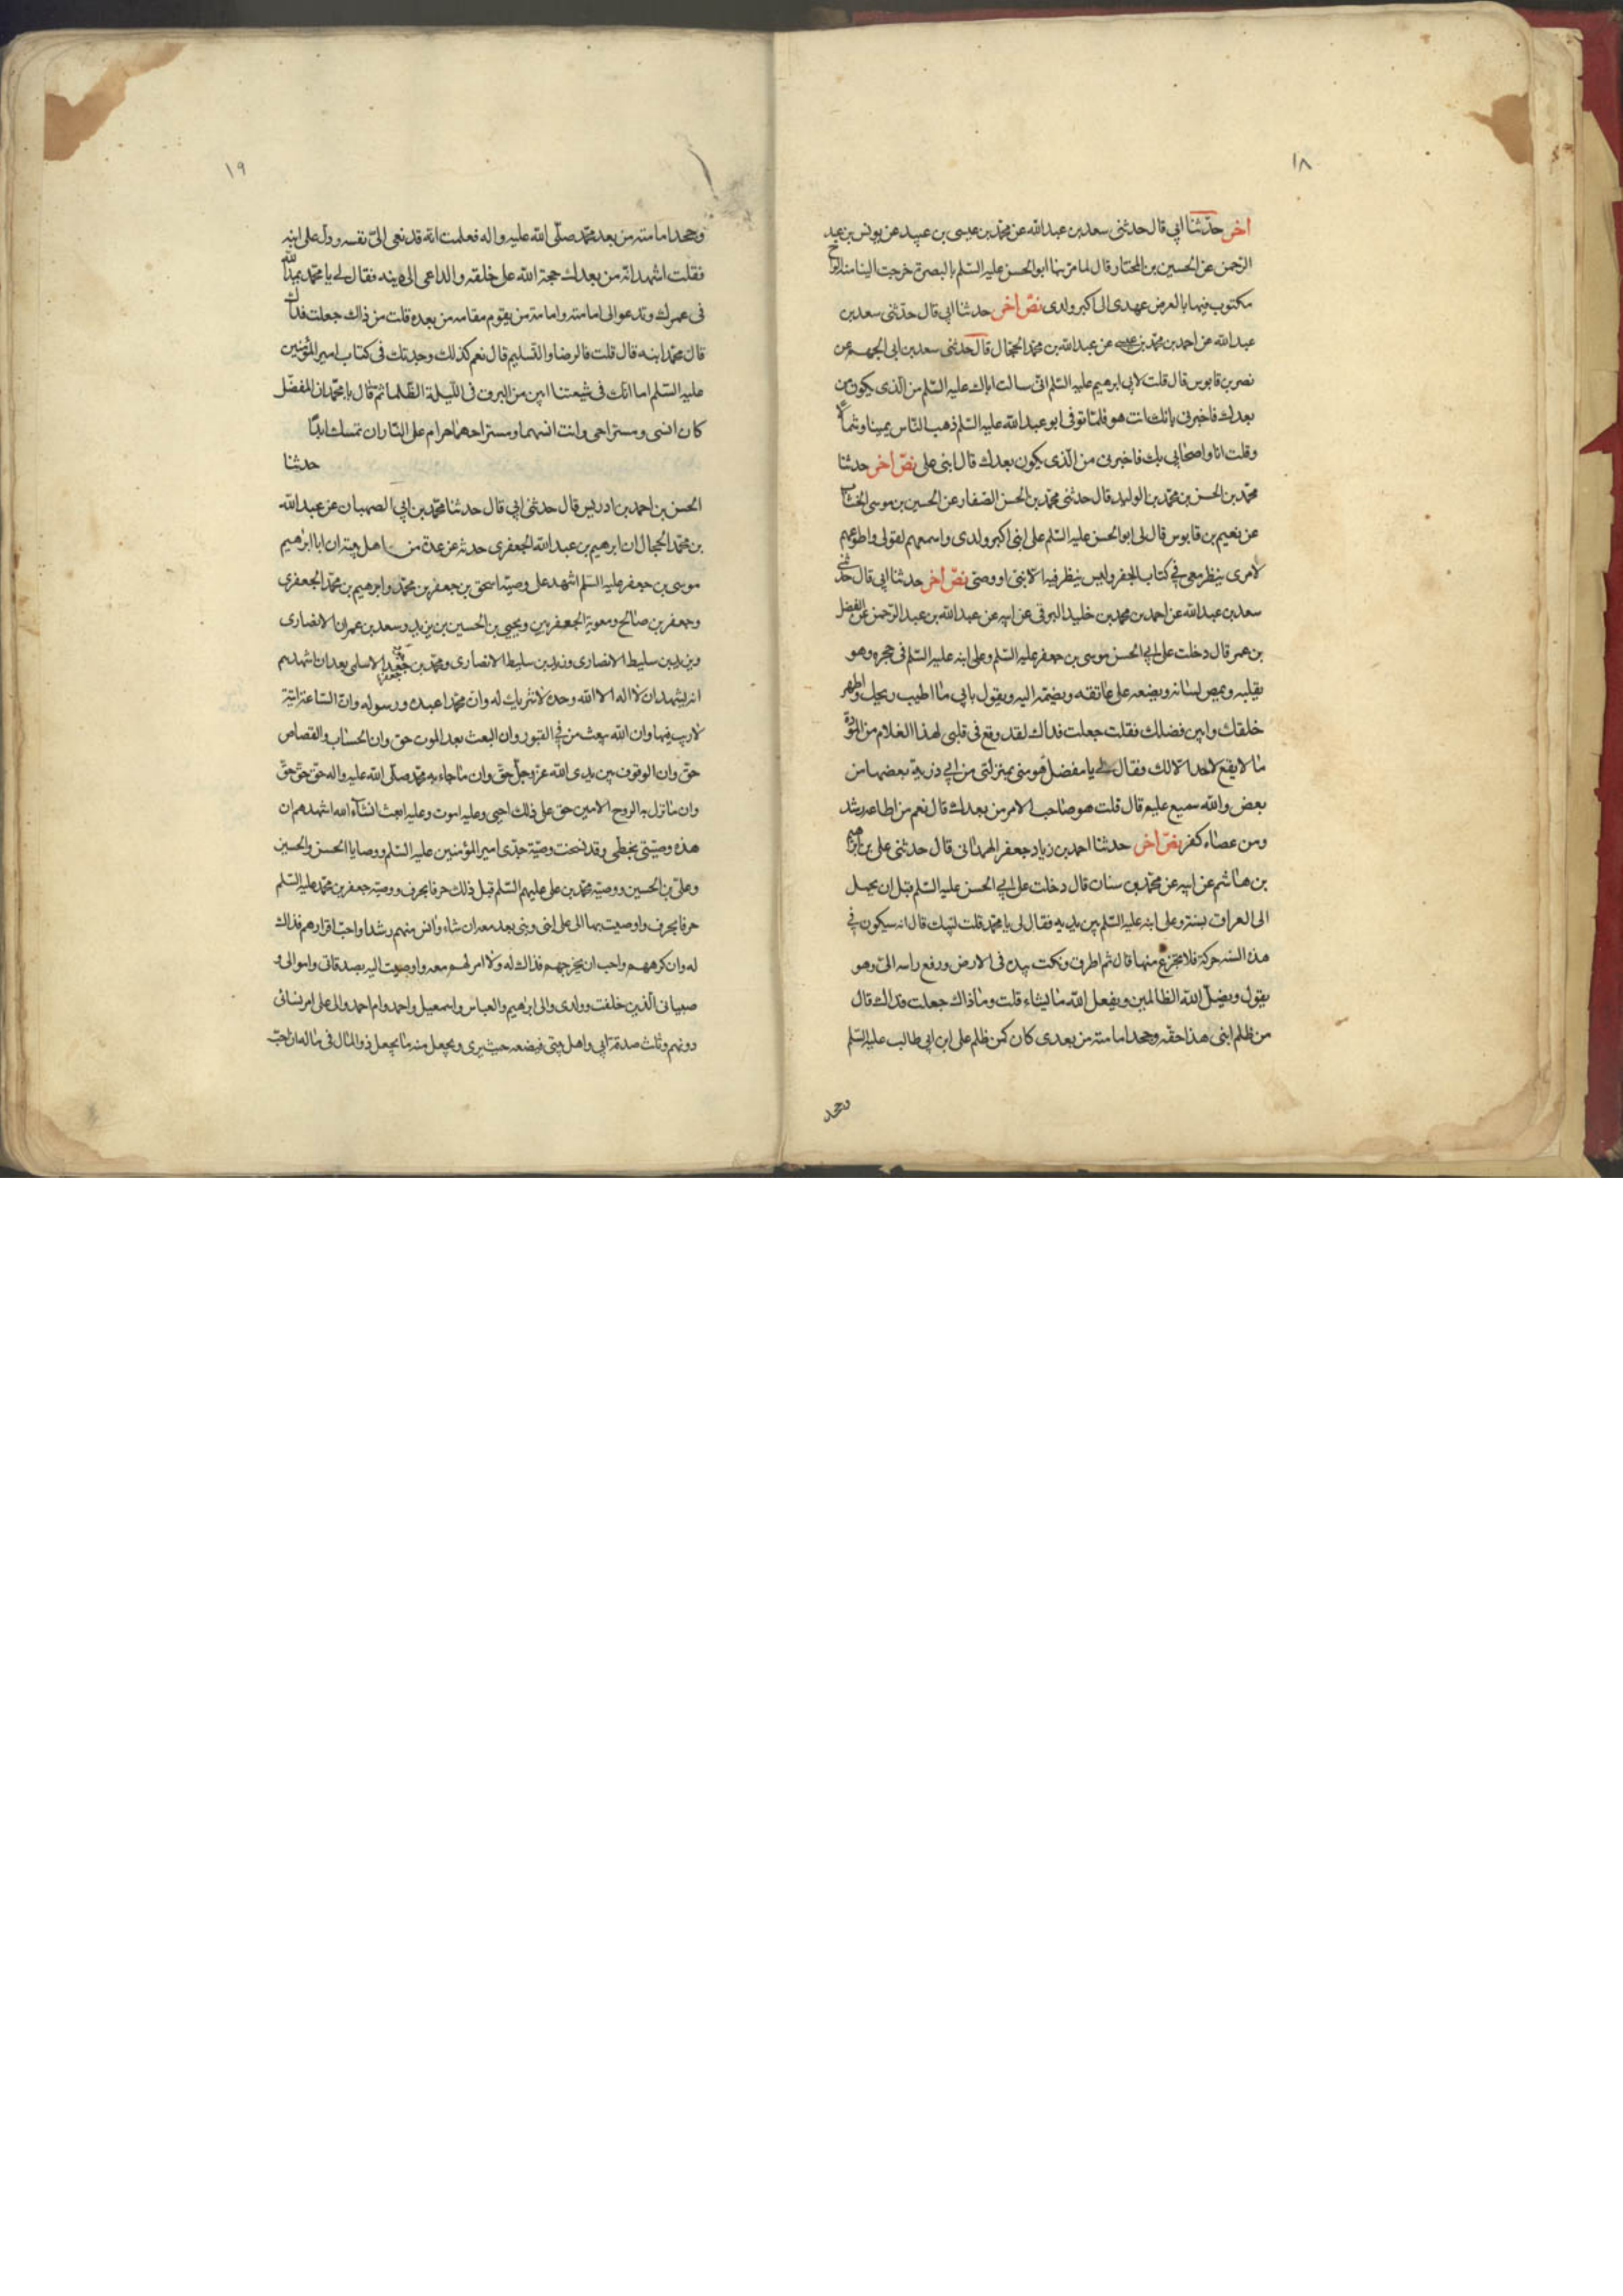 ١٨
اخر حدثنا ابي قال حدثني سعد بن عبد الله عن محمد بن عيسى بن عبيد عن يونس بن عبد
الرحمن عن الحسين بن المختار قال لما مر بنا ابو الحسن عليه السلم بالبصرة خرجت الينا منه الواح
مكتوب فيها بالعرض عهدى الى اكبر ولدى نص اخر حدثنا ابي قال حدثني سعد بن
عبد الله عن احمد بن محمد بن عيسى عن عبد الله بن محمد الحجال قال حدثني سعد بن ابي الجهم عن
نصر بن قابوس قال قلت لابي ابرهيم عليه السلم اني سالت اباك عليه السلم من الذى يكون من
بعدك فاخبرني بانك انت هو فلما توفى ابو عبد الله عليه السلم ذهب الناس يمينا وشمالا
وقلت انا واصحابي بك فاخبرني من الذى يكون بعدك قال ابني على نص اخر حدثنا
محمد بن الحسن بن محمد بن الوليد قال حدثني محمد بن الحسن الصفار عن الحسين بن موسى الخشاب
عن نعيم بن قابوس قال لى ابو الحسن عليه السلم على ابنى اكبر ولدى واسمعهم لقولى واطوعهم
لامرى ينظر معى في كتاب الجفر وليس ينظر فيه الا نبى او وصى نص اخر حدثنا ابي قال حدثنى
سعد بن عبد الله عن احمد بن محمد بن خليد البرقى عن ابيه عن عبد الله بن عبد الرحمن عن المفضل
بن عمر قال دخلت على ابي الحسن موسى بن جعفر عليه السلم وعلى ابنه عليه السلم في حجره وهو
يقبله ويمص لسانه ويضعه على عاتقه ويضمه اليه ويقول بابي ما اطيب ريحك واطهر
خلقك وابين فضلك فقلت جعلت فداك لقد وقع في قلبى لهذا الغلام من المودة
ما لا يقع لاحد الا لك فقال لي يا مفضل هو منى بمنزلتى من ابي ذرية بعضها من
بعض والله سميع عليم قال قلت هو صاحب الامر من بعدك قال نعم من اطاعه رشد
ومن عصاه كفر نص اخر حدثنا احمد بن زياد جعفر الهمدانى قال حدثنى على بن ابرهيم
بن هاشم عن ابيه عن محمد بن سنان قال دخلت على ابي الحسن عليه السلم قبل ان يحمل
الى العراق بسنة وعلى ابنه عليه السلم بين يديه فقال لى يا محمد قلت لبيك قال انه سيكون في
هذه السنه حركة فلا تجزع منها قال ثم اطرق ونكت بيده في الارض ورفع راسه الى وهو
يقول ويضل الله الظالمين ويفعل الله ما يشاء قلت وما ذاك جعلت فداك قال
من ظلم ابنى هذا حقه وجحد امامته من بعدى كان كمن ظلم على ابن ابي طالب عليه السلم
وجحد
١٩
وجحد امامته من بعد محمد صلى الله عليه واله فعلمت انه قد نعى الى نفسه ودل على ابنه
فقلت اشهد انه من بعدك حجة الله على خلقه والداعى الى دينه فقال لي يا محمد يمد الله
فى عمرك وتدعوا الى امامته وامامة من يقوم مقامه من بعده قلت من ذاك جعلت فداك
قال محمد ابنه قال قلت فالرضا والتسليم قال نعم كذلك وجدتك فى كتاب امير المؤمنين
عليه السلم اما انك فى شيعتنا ابين من البرق فى الليلة الظلما ثم قال يا محمد ان المفضل
كان انسى ومستراحى وانت انسهما ومستراحهما حرام على النار ان تمسك ابدا
حدثنا
الحسن بن احمد بن ادريس قال حدثنى ابي قال حدثنا محمد بن ابي الصهبان عن عبد الله
بن محمد الحجال ان ابرهيم بن عبد الله الجعفرى حدثه عن عدة من اهل بيته ان ابا ابرهيم
موسى بن جعفر عليه السلم اشهد على وصيته اسحق بن جعفر بن محمد وابرهيم بن محمد الجعفرى
وجعفر بن صالح ومعوية الجعفريين ويحيى بن الحسين بن زيد وسعد بن عمران الانصارى
ويزيد بن سليط الانصارى وزيد بن سليط الانصارى ومحمد بن جعد الاسلمى بعد ان اشهدهم
انه يشهد ان لا اله الا الله وحده لا شريك له وان محمدا عبده ورسوله وان الساعة اتية
لا ريب فيها وان الله يبعث من في القبور وان البعث بعد الموت حق وان الحساب والقصاص
حق وان الوقوف بين يدى الله عز وجل حق وان ما جاء به محمد صلى الله عليه واله حق حق حق
وان ما نزل به الروح الامين حق على ذلك احيى وعليه اموت وعليه ابعث انشاء الله اشهدهم ان
هذه وصيتى بخطى وقد نسخت وصية جدى امير المؤمنين عليه السلم ووصايا الحسن والحسين
وعلى بن الحسين ووصية محمد بن على عليهم السلم قبل ذلك حرفا بحرف ووصية جعفر بن محمد عليه السلم
حرفا بحرف واوصيت بها الى على ابنى وبنى بعد معه ان شاء وانس منهم رشدا واحب اقرارهم فذاك
له وان كرههم واحب ان يخرجهم فذاك له ولا امر لهم معه واوصيت اليه بصدقاتى واموالى و
صبيانى الذين خلفت وولدى والى ابرهيم والعباس واسمعيل واحمد وام احمد والى على امر نسائى
دونهم وثلث صدقة ابي واهل بيتى فيضعه حيث يرى ويجعل منه ما يجعل ذو المال فى ماله ان احب